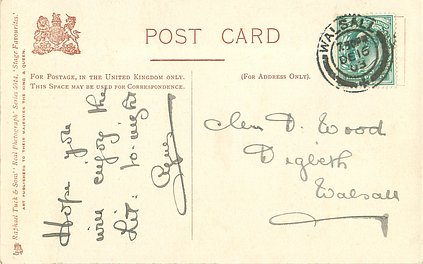 POST CARD
FOR POSTAGE, IN THE UNITED KINGDOM ONLY.
THIS SPACE MAY BE USED FOR CORRESPONDENCE.
(FOR ADDRESS ONLY).
WALSALL
Hope you
will enjoy the
Lit: to-night
D. Wood
Digbeth
Walsall
Raphael Tuck & Sons' "Real Photograph" Series 5014, "Stage Favourites."
ART PUBLISHERS TO THEIR MAJESTIES THE KING & QUEEN.